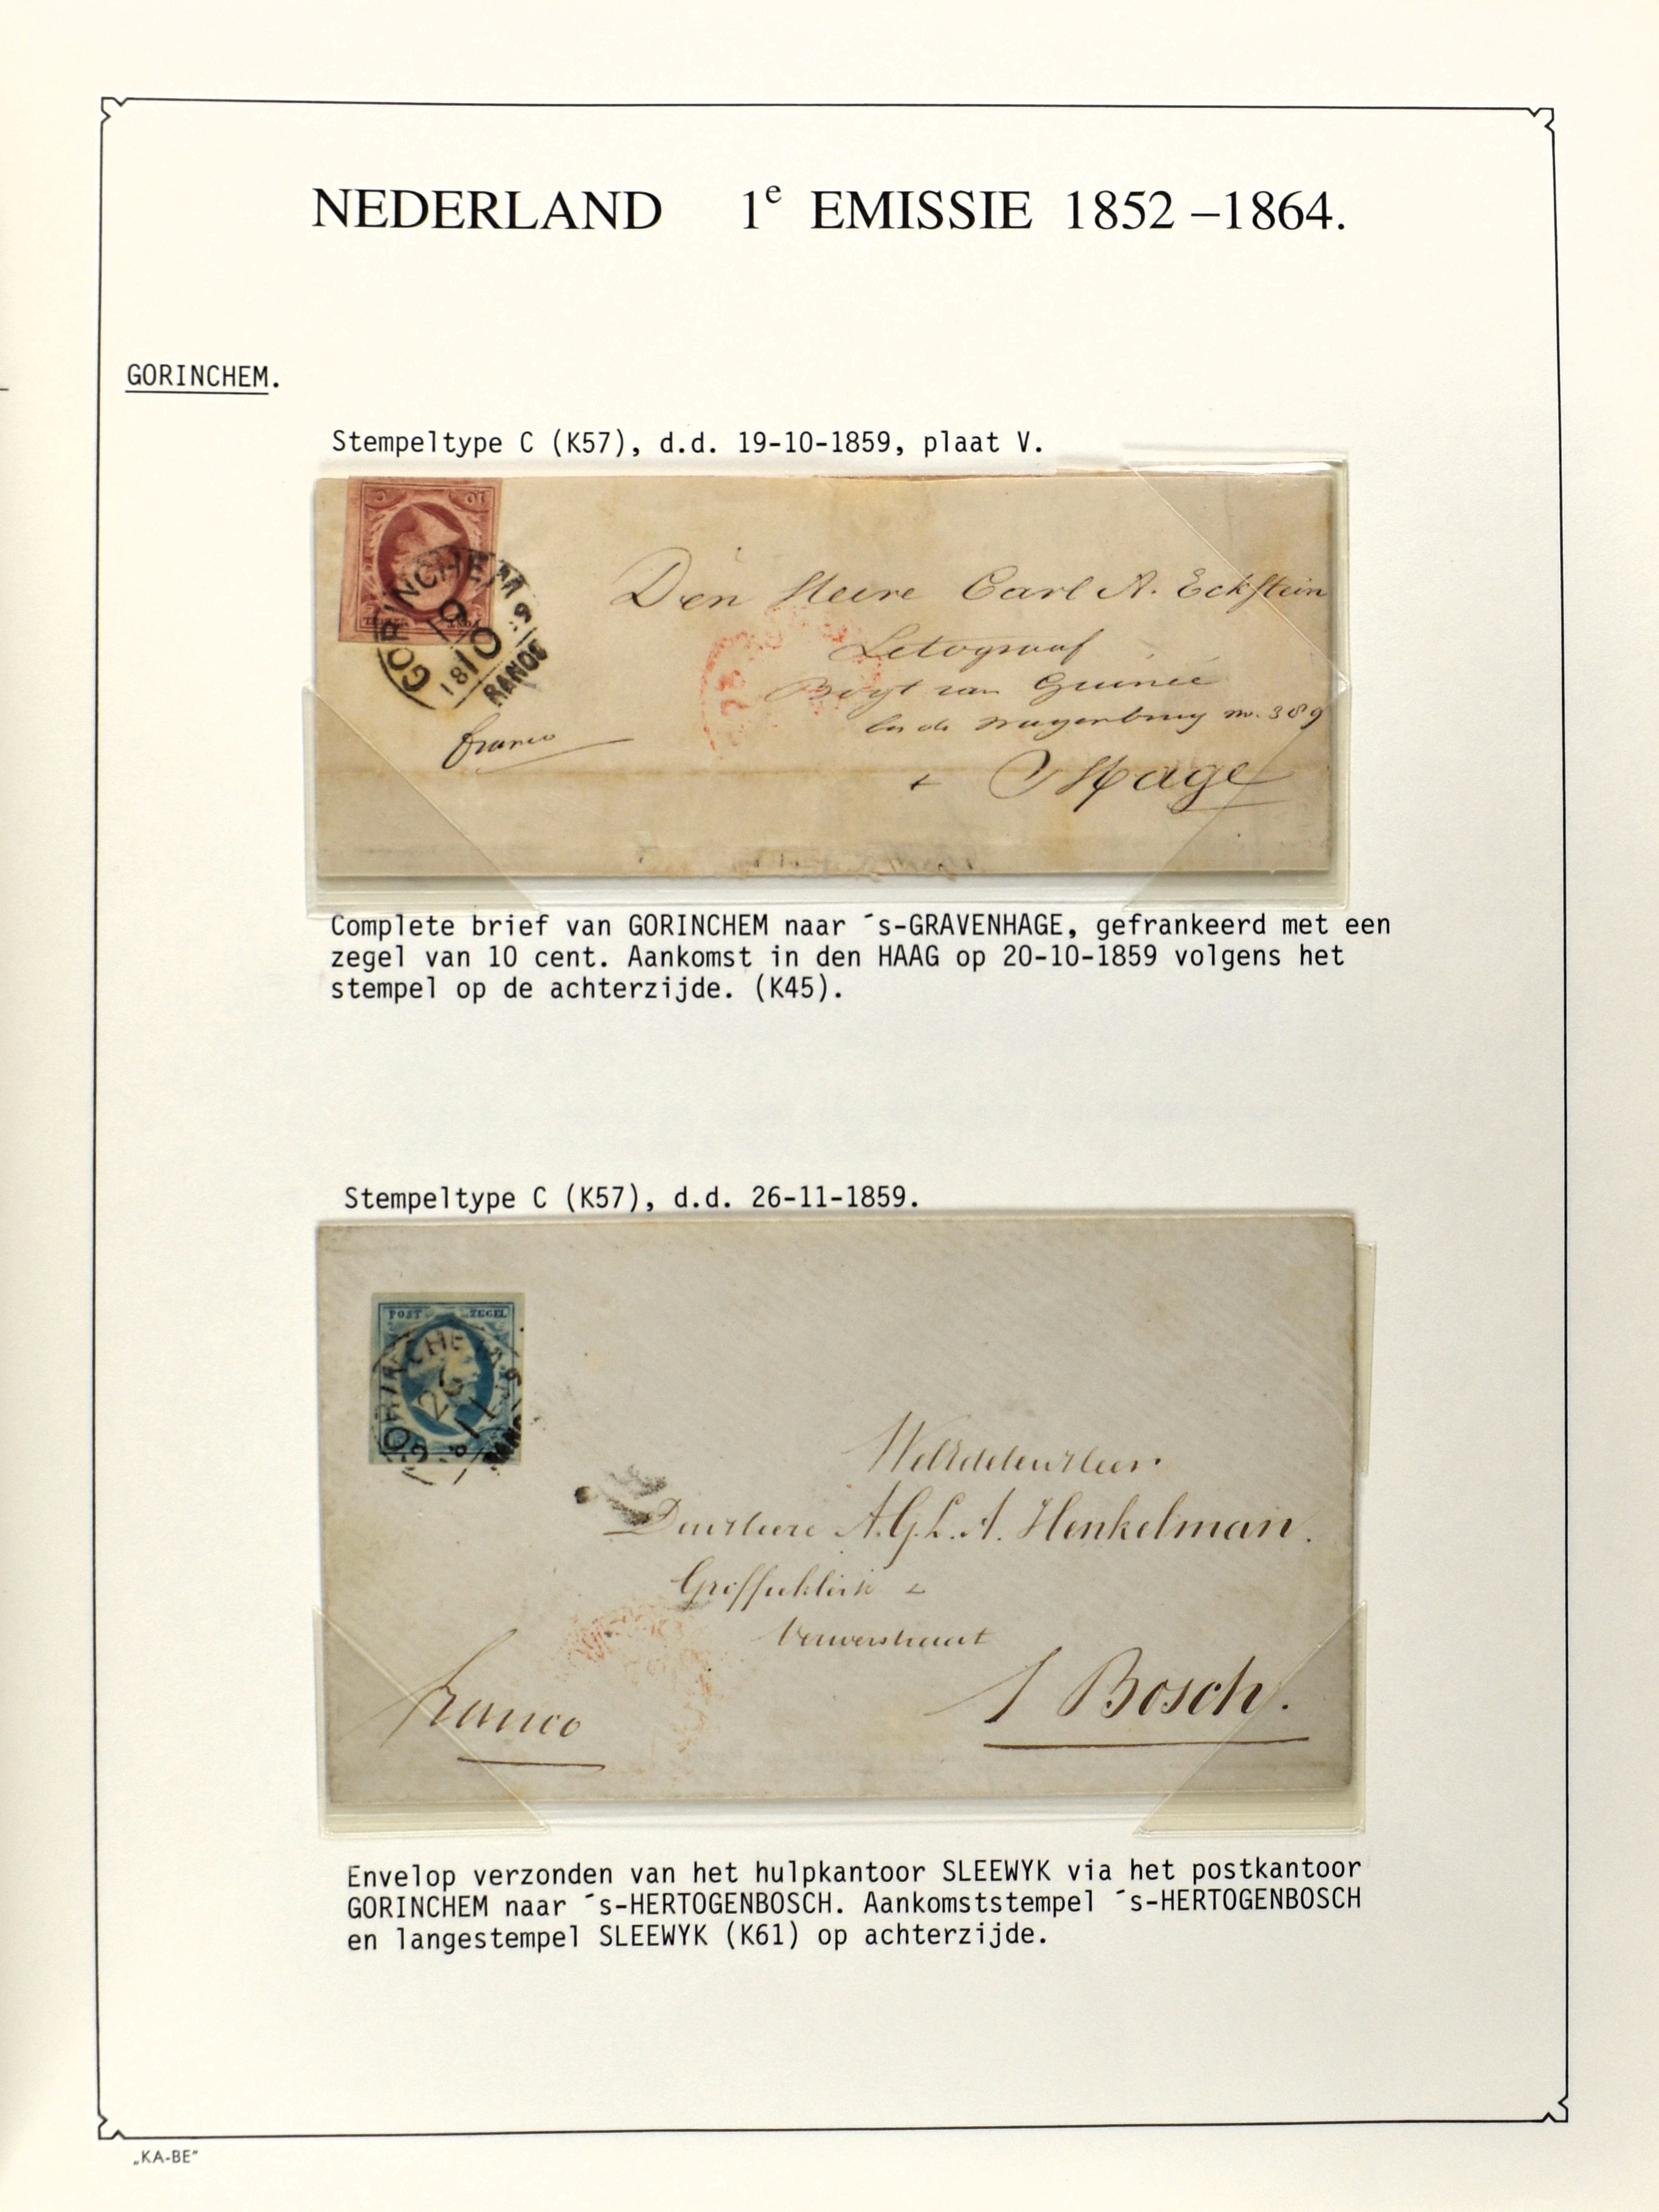 NEDERLAND 1e EMISSIE 1852 –1864.
GORINCHEM.
Stempeltype C (K57), d.d. 19-10-1859, plaat V.
GORINCHEM
19
10
18 9
RANCO
Den Heere Carl A. Eckstein
Letograaf
van Guinee
no. 389
franco
s Hage
Complete brief van GORINCHEM naar ´s-GRAVENHAGE, gefrankeerd met een
zegel van 10 cent. Aankomst in den HAAG op 20-10-1859 volgens het
stempel op de achterzijde. (K45).
Stempeltype C (K57), d.d. 26-11-1859.
POST ZEGEL
GORINCHEM
26
11
A.G.L.A. Henkelman.
franco
S Bosch.
Envelop verzonden van het hulpkantoor SLEEWYK via het postkantoor
GORINCHEM naar ´s-HERTOGENBOSCH. Aankomststempel ´s-HERTOGENBOSCH
en langestempel SLEEWYK (K61) op achterzijde.
„KA-BE"